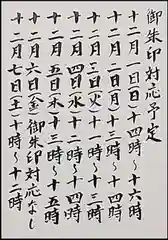 御朱印対応予定
十二月一日(日)十四時〜十六時
十二月二日(月)十一時〜十三時
十二月三日(火)十一時〜十三時
十二月四日(水)十二時〜十四時
十二月五日(木)十三時〜十五時
十二月六日(金)御朱印対応なし
十二月七日(土)十時〜十二時